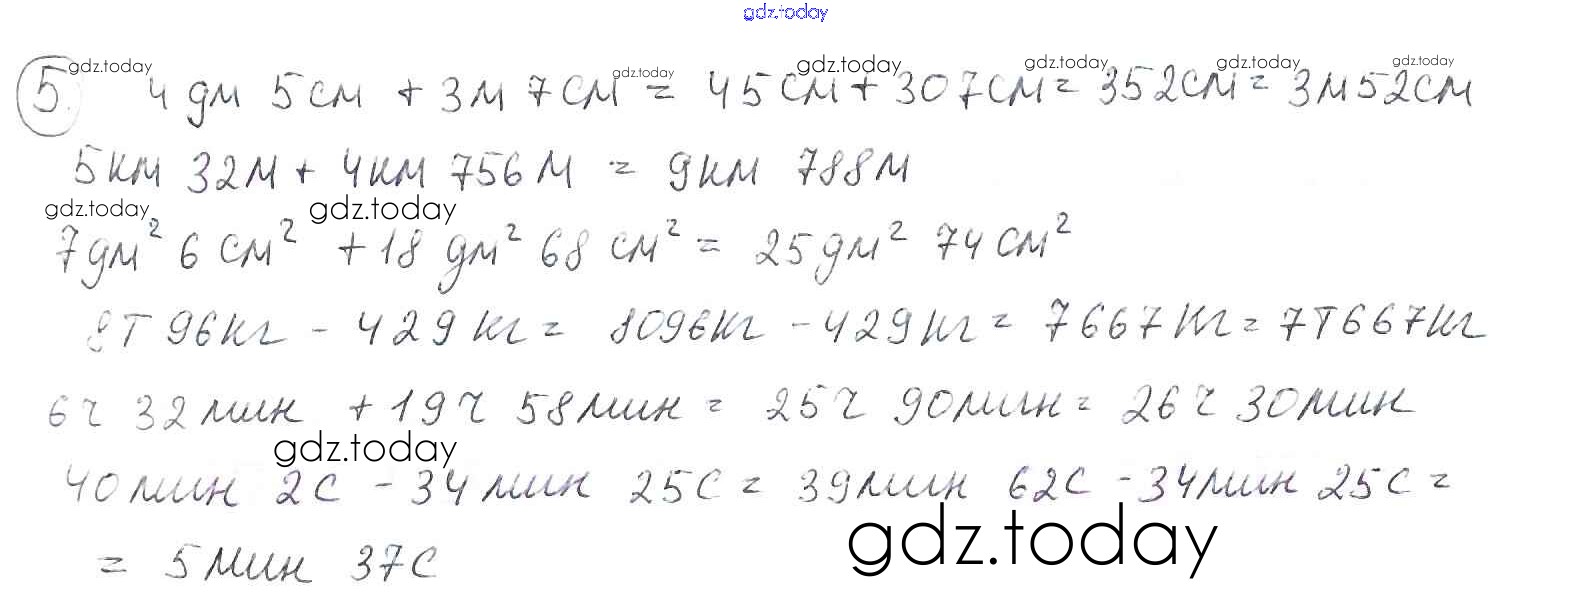 gdz.today
5. 4 дм 5 см + 3 м 7 см = 45 см + 307 см = 352 см = 3 м 52 см
gdz.today gdz.today gdz.today gdz.today gdz.today gdz.today
5 км 32 м + 4 км 756 м = 9 км 788 м
gdz.today gdz.today
7 дм² 6 см² + 18 дм² 68 см² = 25 дм² 74 см²
8 т 96 кг - 429 кг = 8096 кг - 429 кг = 7667 кг = 7 т 667 кг
6 ч 32 мин + 19 ч 58 мин = 25 ч 90 мин = 26 ч 30 мин
gdz.today
40 мин 2 с - 34 мин 25 с = 39 мин 62 с - 34 мин 25 с =
gdz.today
= 5 мин 37 с